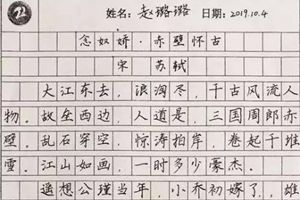 2
姓名：赵璐璐 日期：2019.10.4
念奴娇·赤壁怀古
宋 苏轼
大江东去，浪淘尽，千古风流人
物。故垒西边，人道是，三国周郎赤
壁。乱石穿空，惊涛拍岸，卷起千堆
雪。江山如画，一时多少豪杰。
遥想公瑾当年，小乔初嫁了，雄